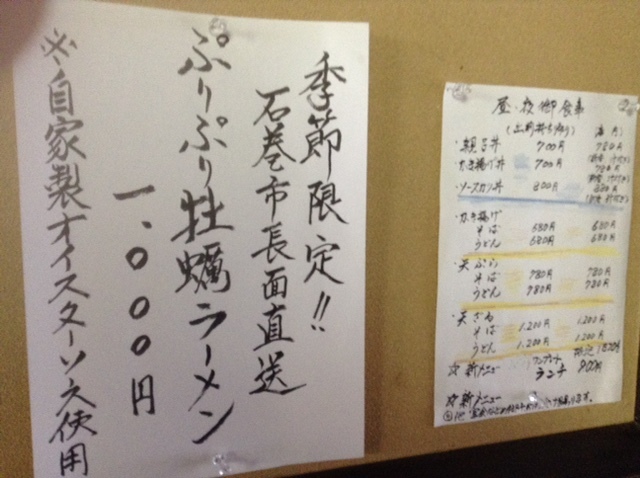 季節限定!!
石巻市長面直送
ぷりぷり牡蠣ラーメン
一、〇〇〇円
※自家製オイスターソース使用
昼・夜御食事
・親子丼 700円 780円
・かき揚げ丼 700円 780円
・ソースカツ丼 800円
・かき揚げ
そば 680円 680円
うどん 680円 680円
・天ぷら
そば 980円 980円
うどん 980円 980円
・天ざる
そば 1.200円 1.200円
うどん 1.200円 1.200円
☆新メニュー ワンプレートランチ 900円
☆新メニュー